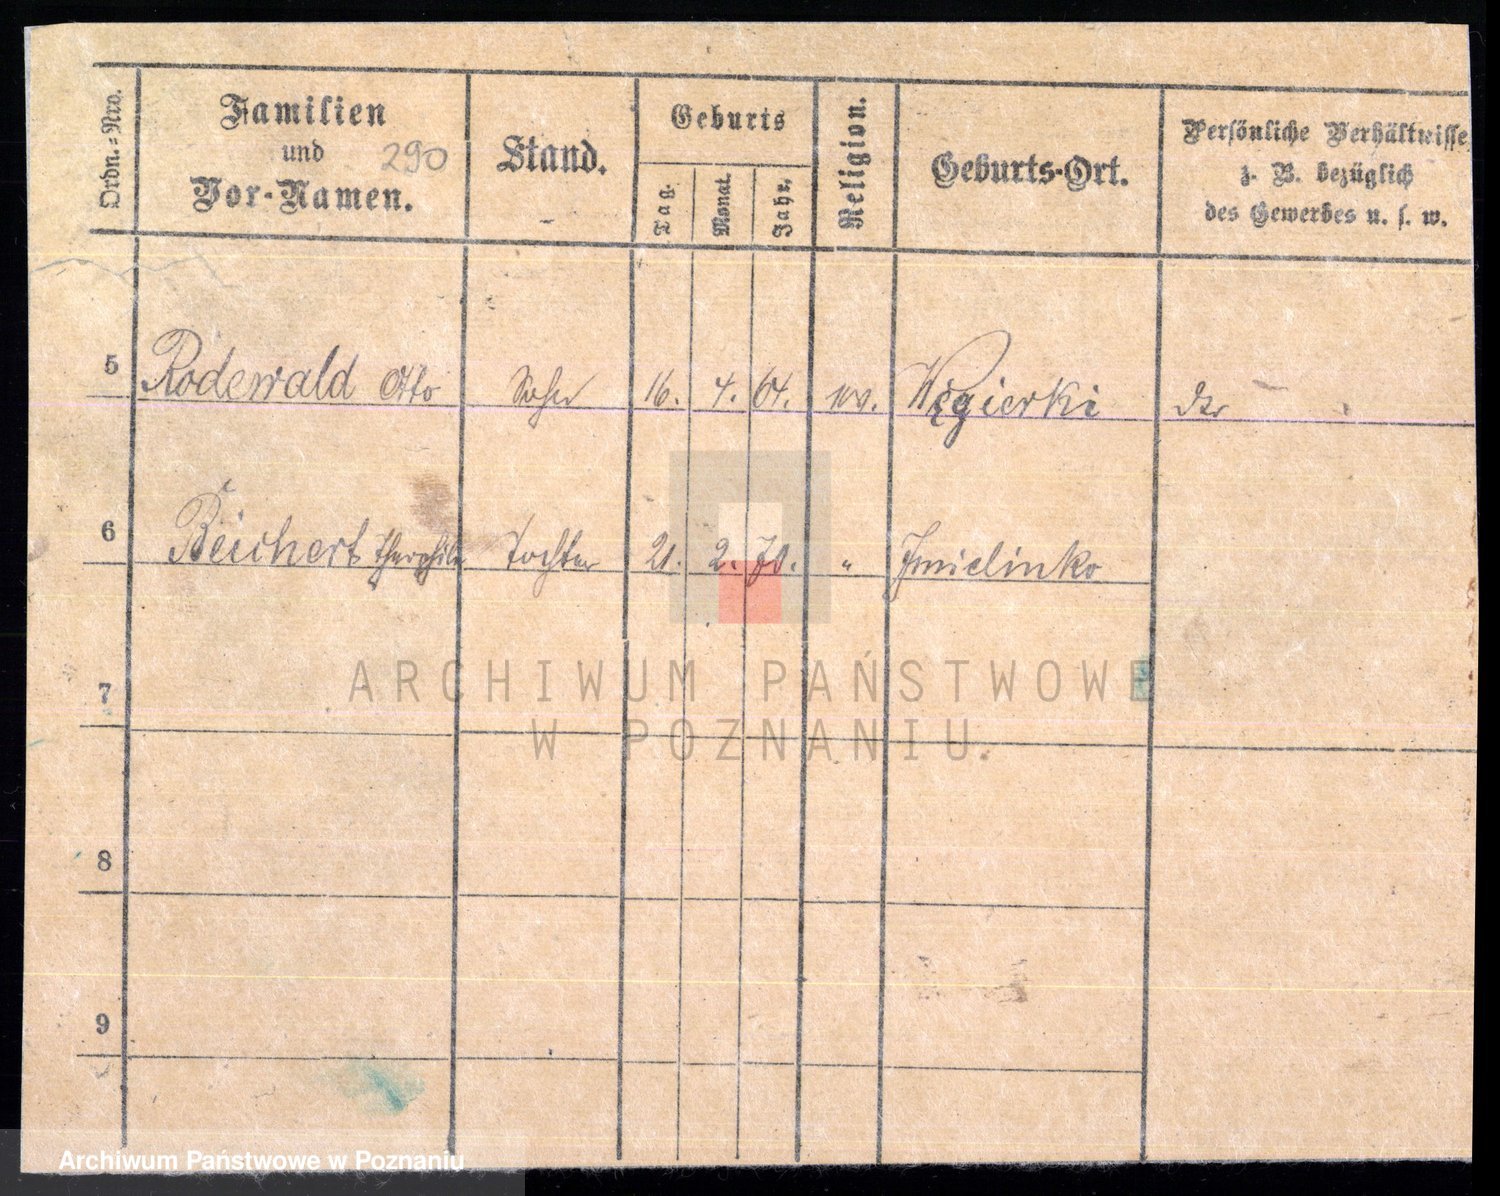 Ordn.=Nro.
Familien
und
Vor-Namen.
290
Stand.
Geburts
Tag.
Monat.
Jahr.
Religion.
Geburts-Ort.
Persönliche Verhältnisse
z. B. bezüglich
des Gewerbes u. s. w.
5 Rodewald Otto 16. 4. 64. Węgierki
6 Beichert Theophila Tochter 21. 2. 70. " Imielinko
7
8
9
ARCHIWUM PAŃSTWOWE
W POZNANIU
Archiwum Państwowe w Poznaniu